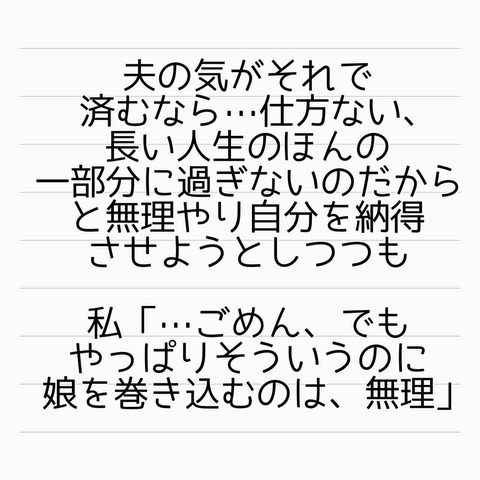 夫の気がそれで
済むなら…仕方ない、
長い人生のほんの
一部分に過ぎないのだから
と無理やり自分を納得
させようとしつつも
私「…ごめん、でも
やっぱりそういうのに
娘を巻き込むのは、無理」